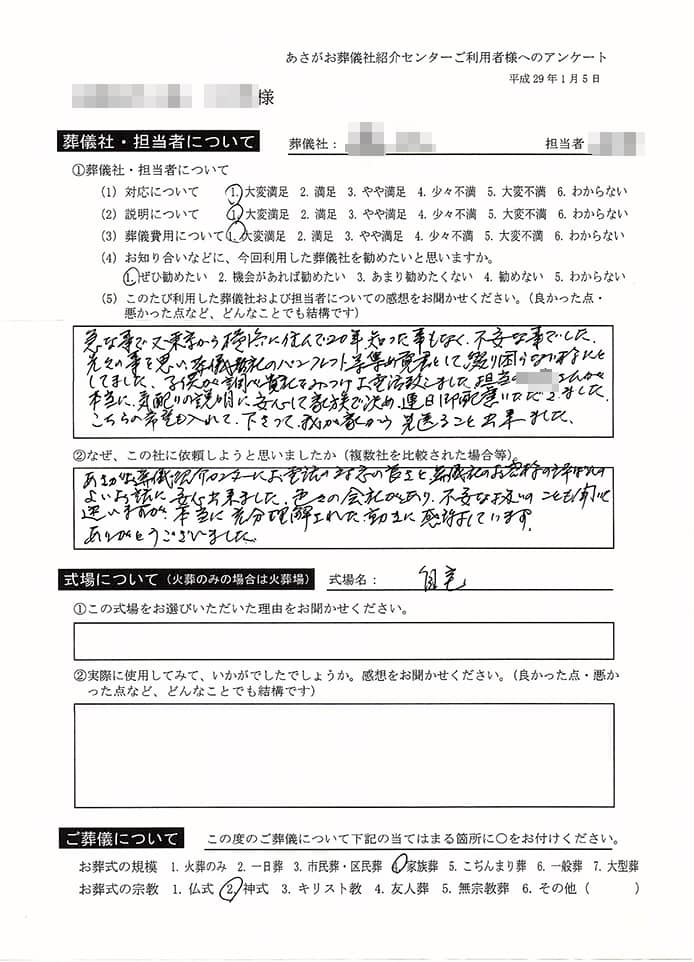 あさがお葬儀社紹介センターご利用者様へのアンケート
平成29年1月5日
様
葬儀社・担当者について 葬儀社: 担当者
①葬儀社・担当者について
(1) 対応について 1. 大変満足 2. 満足 3. やや満足 4. 少々不満 5. 大変不満 6. わからない
(2) 説明について 1. 大変満足 2. 満足 3. やや満足 4. 少々不満 5. 大変不満 6. わからない
(3) 葬儀費用について 1. 大変満足 2. 満足 3. やや満足 4. 少々不満 5. 大変不満 6. わからない
(4) お知り合いなどに、今回利用した葬儀社を勧めたいと思いますか。
1. ぜひ勧めたい 2. 機会があれば勧めたい 3. あまり勧めたくない 4. 勧めない 5. わからない
(5) このたび利用した葬儀社および担当者についての感想をお聞かせください。(良かった点・
悪かった点など、どんなことでも結構です)
急な事で又東京から横浜に住んで20年知った事もなく、不安な事でした。
先々の事を思い葬儀社のパンフレット等集め資料として
してました、子供が調べ貴社をみつけお電話致しました。担当の さんが
本当に、気配りの説明に安心して家族で決め、連日御配慮いただきました。
こちらの希望も入れて、下さって、我が家から見送ること出来ました。
②なぜ、この社に依頼しようと思いましたか(複数社を比較された場合等)。
あさがお葬儀紹介センターにお電話の対応の良さと、葬儀社の
よいお話に安心出来ました。色々の会社があり、不安な
迷いますが、本当に充分理解された動きに感謝しています。
ありがとうございました。
式場について(火葬のみの場合は火葬場) 式場名: 自宅
①この式場をお選びいただいた理由をお聞かせください。
②実際に使用してみて、いかがでしたでしょうか。感想をお聞かせください。(良かった点・悪か
った点など、どんなことでも結構です)
ご葬儀について この度のご葬儀について下記の当てはまる箇所に○をお付けください。
お葬式の規模 1. 火葬のみ 2. 一日葬 3. 市民葬・区民葬 4. 家族葬 5. こぢんまり葬 6. 一般葬 7. 大型葬
お葬式の宗教 1. 仏式 2. 神式 3. キリスト教 4. 友人葬 5. 無宗教葬 6. その他( )